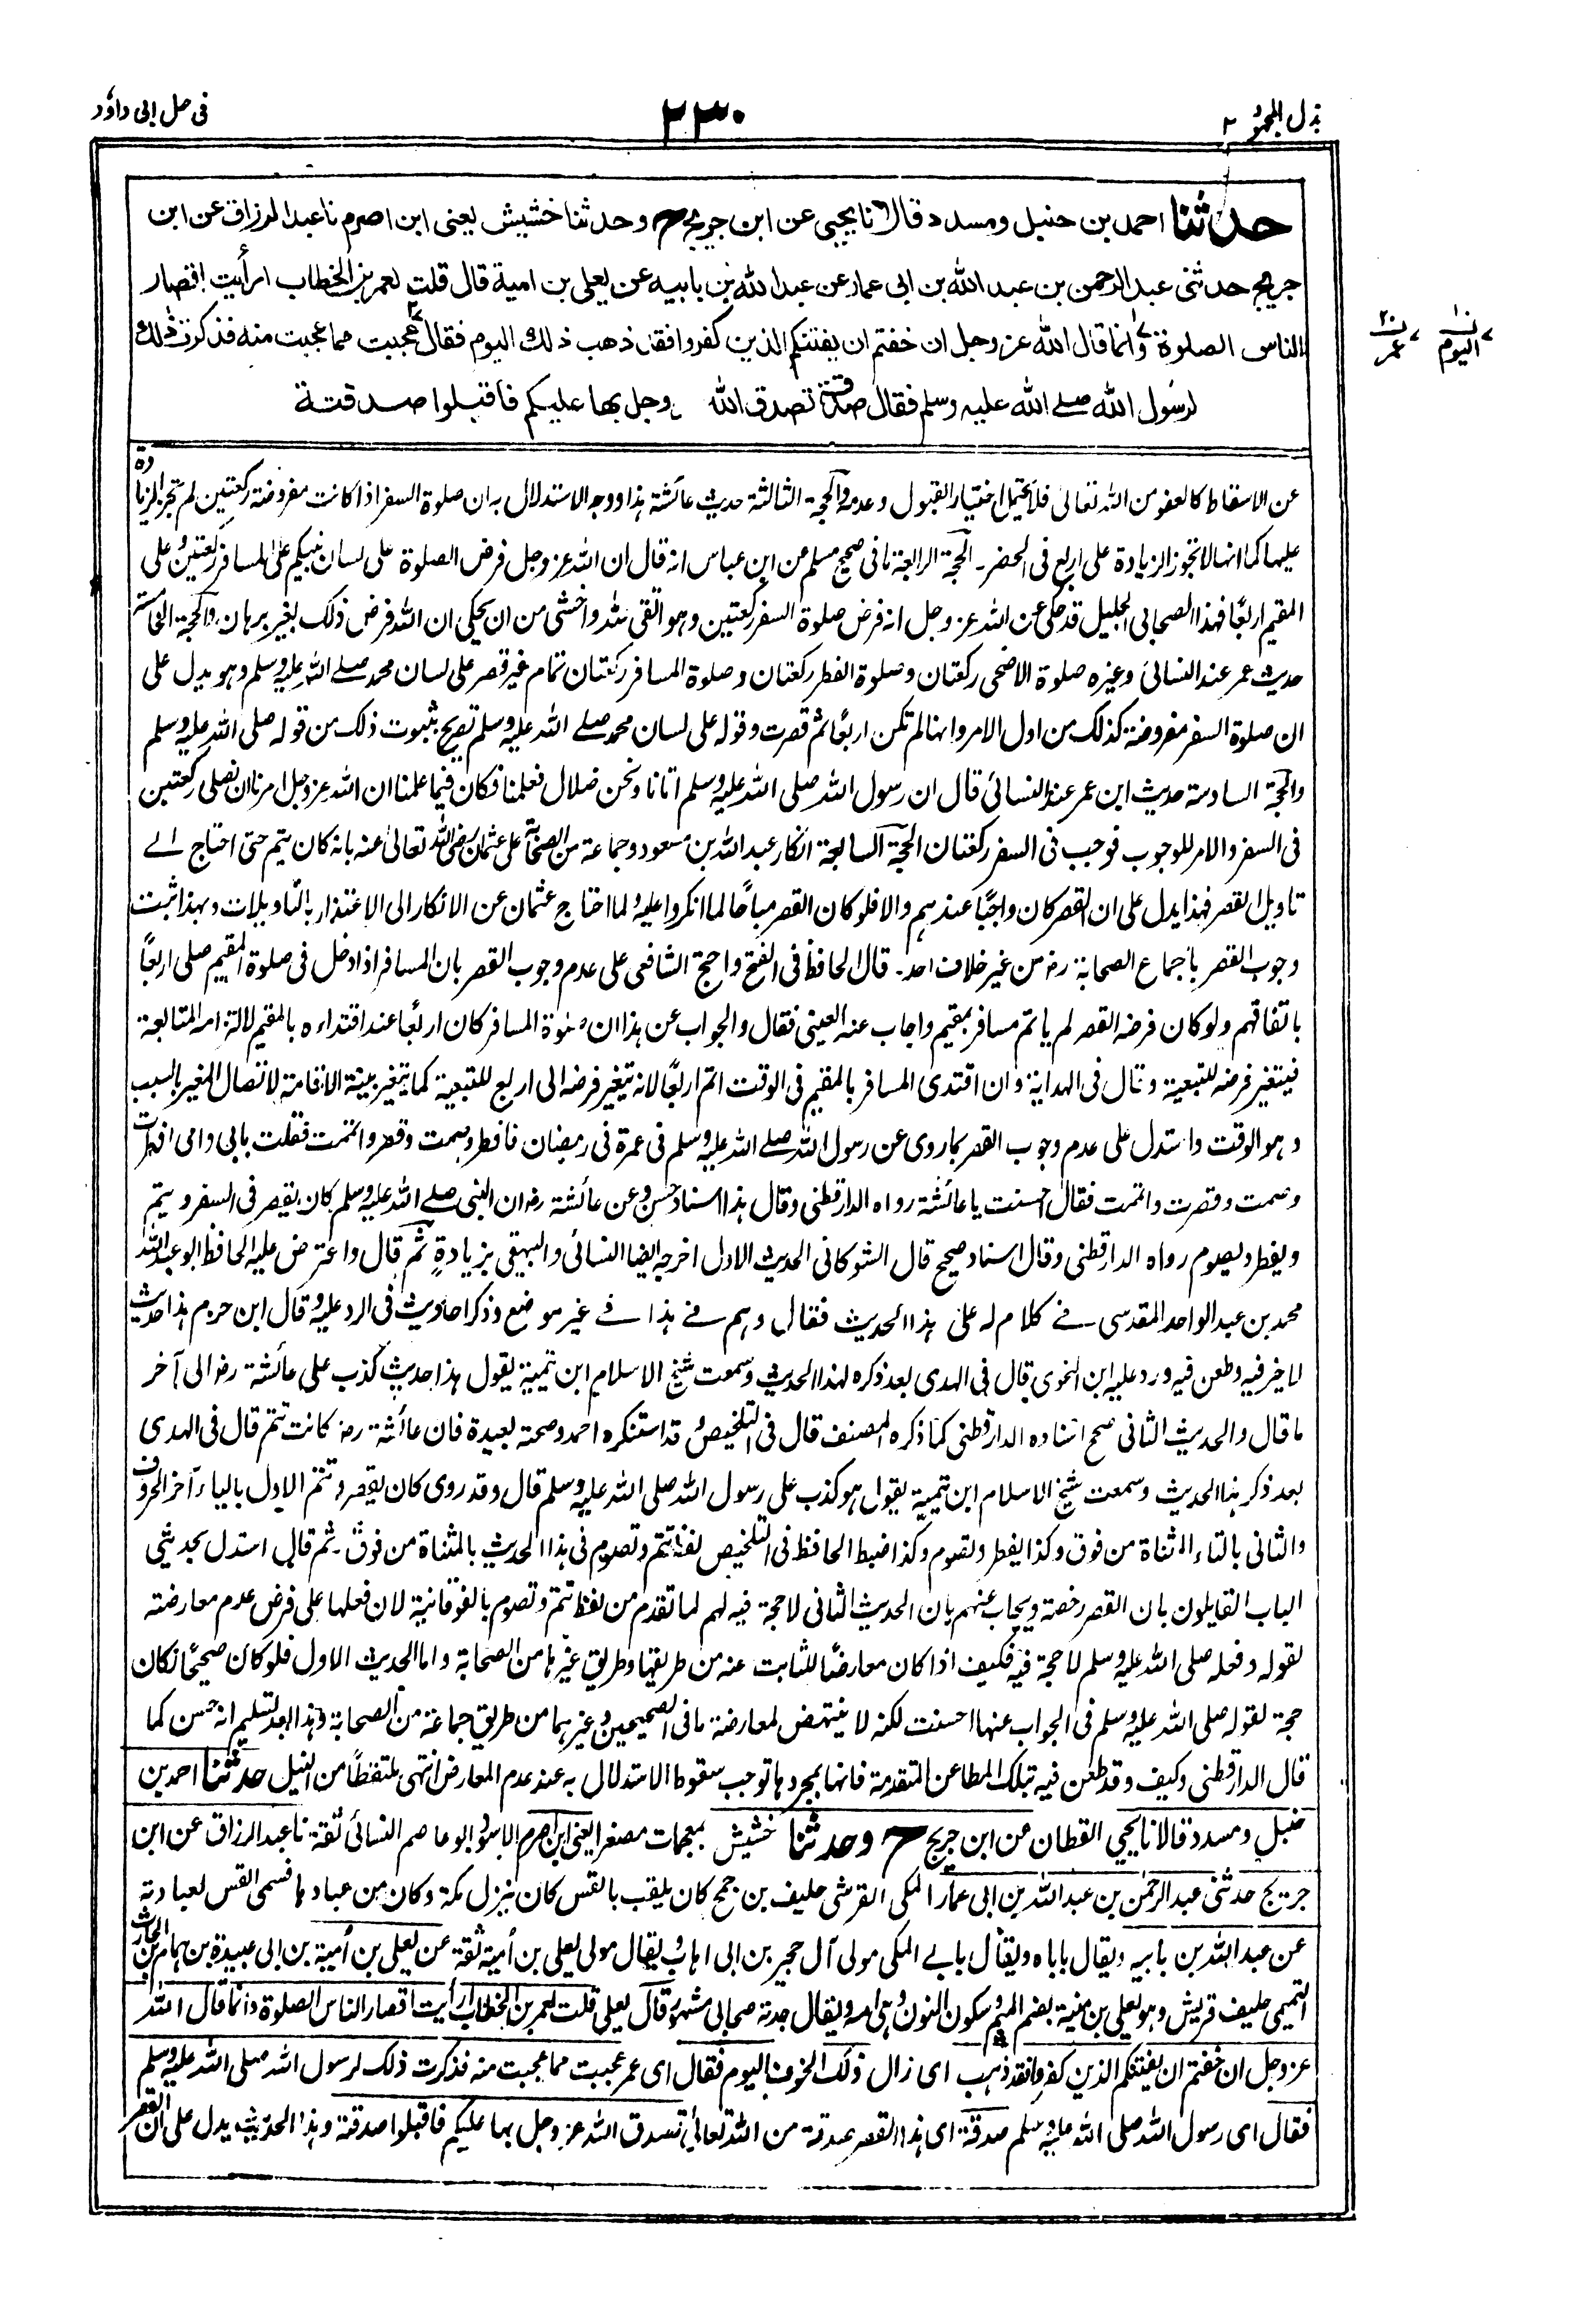 بذل المجهود ٢
٢٣٠
في حل ابى داؤد
حدثنا احمد بن حنبل ومسدد قالا نا يحيى عن ابن جريج ح وحدثنا خشيش يعنى ابن اصرم نا عبد الرزاق عن ابن
جريج حدثنى عبد الرحمن بن عبد الله بن ابى عمار عن عبد الله بن بابيه عن يعلى بن امية قال قلت لعمر بن الخطاب ارأيت اقصار
الناس الصلوة وانما قال الله عز وجل ان خفتم ان يفتنكم الذين كفروا فقد ذهب ذلك اليوم فقال عجبت مما عجبت منه فذكرت ذلك
لرسول الله صلے الله عليه وسلم فقال صدقة تصدق الله وجل بها عليكم فاقبلوا صدقته
ن١ اليوم
ن٢ عمر
عن الاسقاط كالعفو من الله تعالى فلا يحتمل اختيار القبول وعدمه والحجة الثالثة حديث عائشة هذا ووجه الاستدلال به ان صلوة السفر اذا كانت مفروضة ركعتين لم تجز الزيادة
عليها كما انها لا تجوز الزيادة على اربع فى الحضر۔ الحجة الرابعة ما فى صحيح مسلم من ابن عباس انه قال ان الله عز وجل فرض الصلوة على لسان نبيكم على المسافر ركعتين وعلى
المقيم اربعًا فهذا الصحابى الجليل قد حكى عن الله عز وجل انه فرض صلوة السفر ركعتين وهو اتقى لله واخشى من ان يحكى ان الله فرض ذلك بغير برهان، والحجة الخامسة
حديث عمر عند النسائى وغيره صلوة الاضحى ركعتان وصلوة الفطر ركعتان وصلوة المسافر ركعتان تمام غير قصر على لسان محمد صلے الله عليه وسلم وهو يدل على
ان صلوة السفر مفروضة كذلك من اول الامر وانها لم تكن اربعًا ثم قصرت وقوله على لسان محمد صلے الله عليه وسلم تصريح بثبوت ذلك من قوله صلى الله عليه وسلم
والحجة السادسة حديث ابن عمر عند النسائى قال ان رسول الله صلى الله عليه وسلم اتانا ونحن ضلال فعلمنا فكان فيما علمنا ان الله عز وجل امرنا ان نصلى ركعتين
فى السفر والامر للوجوب فوجب فى السفر ركعتان الحجة السابعة انكار عبد الله بن مسعود وجماعة من الصحابة على عثمان رضى الله تعالى عنه بانه كان يتم حتى احتاج الے
تاويل القصر فهذا يدل على ان القصر كان واجبًا عندهم والا فلو كان القصر مباحًا لما انكروا عليه ولما احتاج عثمان عن الانكار الى الاعتذار بالتاويلات وبهذا ثبت
وجوب القصر باجماع الصحابة رض من غير خلاف احد۔ قال الحافظ فى الفتح واحتج الشافعى على عدم وجوب القصر بان المسافر اذا دخل فى صلوة المقيم صلى اربعًا
باتفاقهم ولو كان فرضه القصر لم ياتم مسافر بمقيم واجاب عنه العينى فقال والجواب عن هذا ان صلوة المسافر كان اربعًا عند اقتداءه بالمقيم لالتزامه المتابعة
فيتغير فرضه للتبعية وقال فى الهداية وان اقتدى المسافر بالمقيم فى الوقت اتم اربعًا لانه يتغير فرضه الى اربع للتبعية كما يتغير بنية الاقامة لاتصال المغير بالسبب
وهو الوقت واستدل على عدم وجوب القصر بما روى عن رسول الله صلے الله عليه وسلم فى عمرة فى رمضان فافطر وصمت وقصر واتممت فقلت بابى وامى افطرت
وصمت وقصرت واتممت فقال احسنت يا عائشة رواه الدارقطنى وقال هذا اسناد حسن وعن عائشة رض ان النبى صلے الله عليه وسلم كان يقصر فى السفر ويتم
ويفطر ويصوم رواه الدارقطنى وقال اسناد صحيح قال الشوكانى الحديث الاول اخرجه ايضا النسائى والبيهقى بزيادةٍ ثم قال واعترض عليه الحافظ ابو عبد الله
محمد بن عبد الواحد المقدسى فے كلام له على هذا الحديث فقال وهم فے هذا فے غير موضع وذكر احاديث فى الرد عليه وقال ابن حزم هذا حديث
لا خير فيه وطعن فيه ورد عليه ابن النحوى قال فى الهدى بعد ذكره لهذا الحديث وسمعت شيخ الاسلام ابن تيمية يقول هذا حديث كذب على عائشة رض الى آخر
ما قال والحديث الثانى صحح اسناده الدارقطنى كما ذكره المصنف قال فى التلخيص وقد استنكره احمد وصحته بعيدة فان عائشة رض كانت تتم قال فى الهدى
بعد ذكر هذا الحديث وسمعت شيخ الاسلام ابن تيمية يقول هو كذب على رسول الله صلى الله عليه وسلم قال وقد روى كان يقصر وتتم الاول بالياء آخر الحروف
والثانى بالتاء المثناة من فوق وكذا يفطر وتصوم وكذا ضبط الحافظ فى التلخيص لفظ تتم وتصوم فى هذا الحديث بالمثناة من فوق۔ ثم قال استدل بحديثى
الباب القايلون بان القصر رخصة ويجاب عنهم بان الحديث الثانى لا حجة فيه لهم لما تقدم من لفظ تتم وتصوم بالفوقانية لان فعلها على فرض عدم معارضته
لقوله وفعله صلى الله عليه وسلم لا حجة فيه فكيف اذا كان معارضًا للثابت عنه من طريقها وطريق غيرها من الصحابة واما الحديث الاول فلو كان صحيحًا لكان
حجة لقوله صلى الله عليه وسلم فى الجواب عنها احسنت لكنه لا ينتهض لمعارضة ما فى الصحيحين وغيرهما من طريق جماعة من الصحابة وهذا بعد تسليم انه حسن كما
قال الدارقطنى وكيف وقد طعن فيه بتلك المطاعن المتقدمة فانها بمجردها توجب سقوط الاستدلال به عند عدم المعارض انتهى ملتقطًا من النيل حدثنا احمد بن
حنبل ومسدد قالا نا يحيي القطان عن ابن جريج ح وحدثنا خشيش بمعجمات مصغرا يعنى ابن اصرم الاسود ابو عاصم النسائى ثقة نا عبد الرزاق عن ابن
جريج حدثنى عبد الرحمن بن عبد الله بن ابى عمار المكى القرشى حليف بن جمح كان يلقب بالقس كان ينزل مكة وكان من عبادها فسمى القس لعبادته
عن عبد الله بن بابيه ويقال باباه ويقال بابے المكى مولى آل حجير بن ابى اهاب ويقال مولى يعلى بن أمية ثقة عن يعلى بن أمية بن ابى عبيدة بن همام بن الحارث
التميمى حليف قريش وهو يعلى بن منية بضم الميم وسكون النون وهى امه ويقال جدته صحابى مشهور قال يعلى قلت لعمر بن الخطاب ارأيت اقصار الناس الصلوة وانما قال الله
عز وجل ان خفتم ان يفتنكم الذين كفروا فقد ذهب اى زال ذلك الخوف اليوم فقال اى عمر عجبت مما عجبت منه فذكرت ذلك لرسول الله صلى الله عليه وسلم
فقال اى رسول الله صلى الله عليه وسلم صدقة اى هذا القصر صدقة من الله تعالى تصدق الله عز وجل بها عليكم فاقبلوا صدقته وهذا الحديث يدل على ان القصر